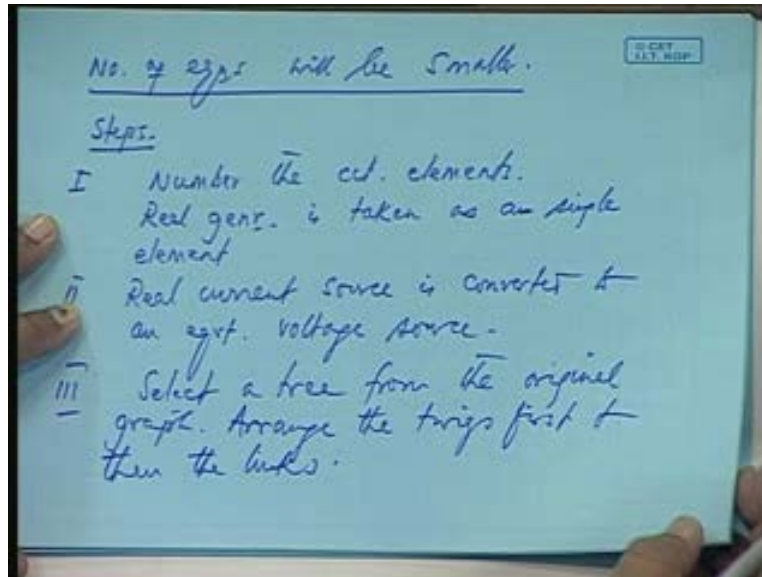 © CET
I.I.T. KGP
No. of eqns will be smaller.
Steps.
I Number the cct. elements.
Real genr. is taken as a single
element
II Real current source is converted to
an eqvt. voltage source.
III Select a tree from the original
graph. Arrange the twigs first &
then the links.